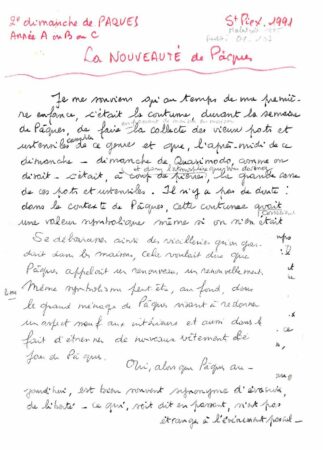 2e dimanche de PAQUES
Année A ou B ou C
St Piex. 1991
La NOUVEAUTÉ de Pâques
Je me souviens qu'au temps de ma premiè-
re enfance, c'était la coutume, durant la semaine
de Pâques, de faire la collecte des vieux pots et
ustensiles de ce genre et que, l'après-midi de ce
dimanche - dimanche de Quasimodo, comme on
disait - c'était, à coup de pierres, la grande casse
de ces pots et ustensiles. Il n'y a pas de doute :
dans le contexte de Pâques, cette coutume avait
une valeur symbolique même si on n'en était
Se débarrasser ainsi des vieilleries qu'on gar-
dait dans les maisons, cela voulait dire que
Pâques appelait un renouveau, un renouvellement.
Même symbolisme peut-être, au fond, dans
le grand ménage de Pâques visant à redonner
un aspect neuf aux intérieurs et aussi dans le
fait d'étrenner de nouveaux vêtements le
jour de Pâques.
Oui, alors que Pâques au-
jourd'hui, est bien souvent synonyme d'évasion,
de liberté - ce qui, soit dit en passant, n'est pas
étrange à l'événement pascal -